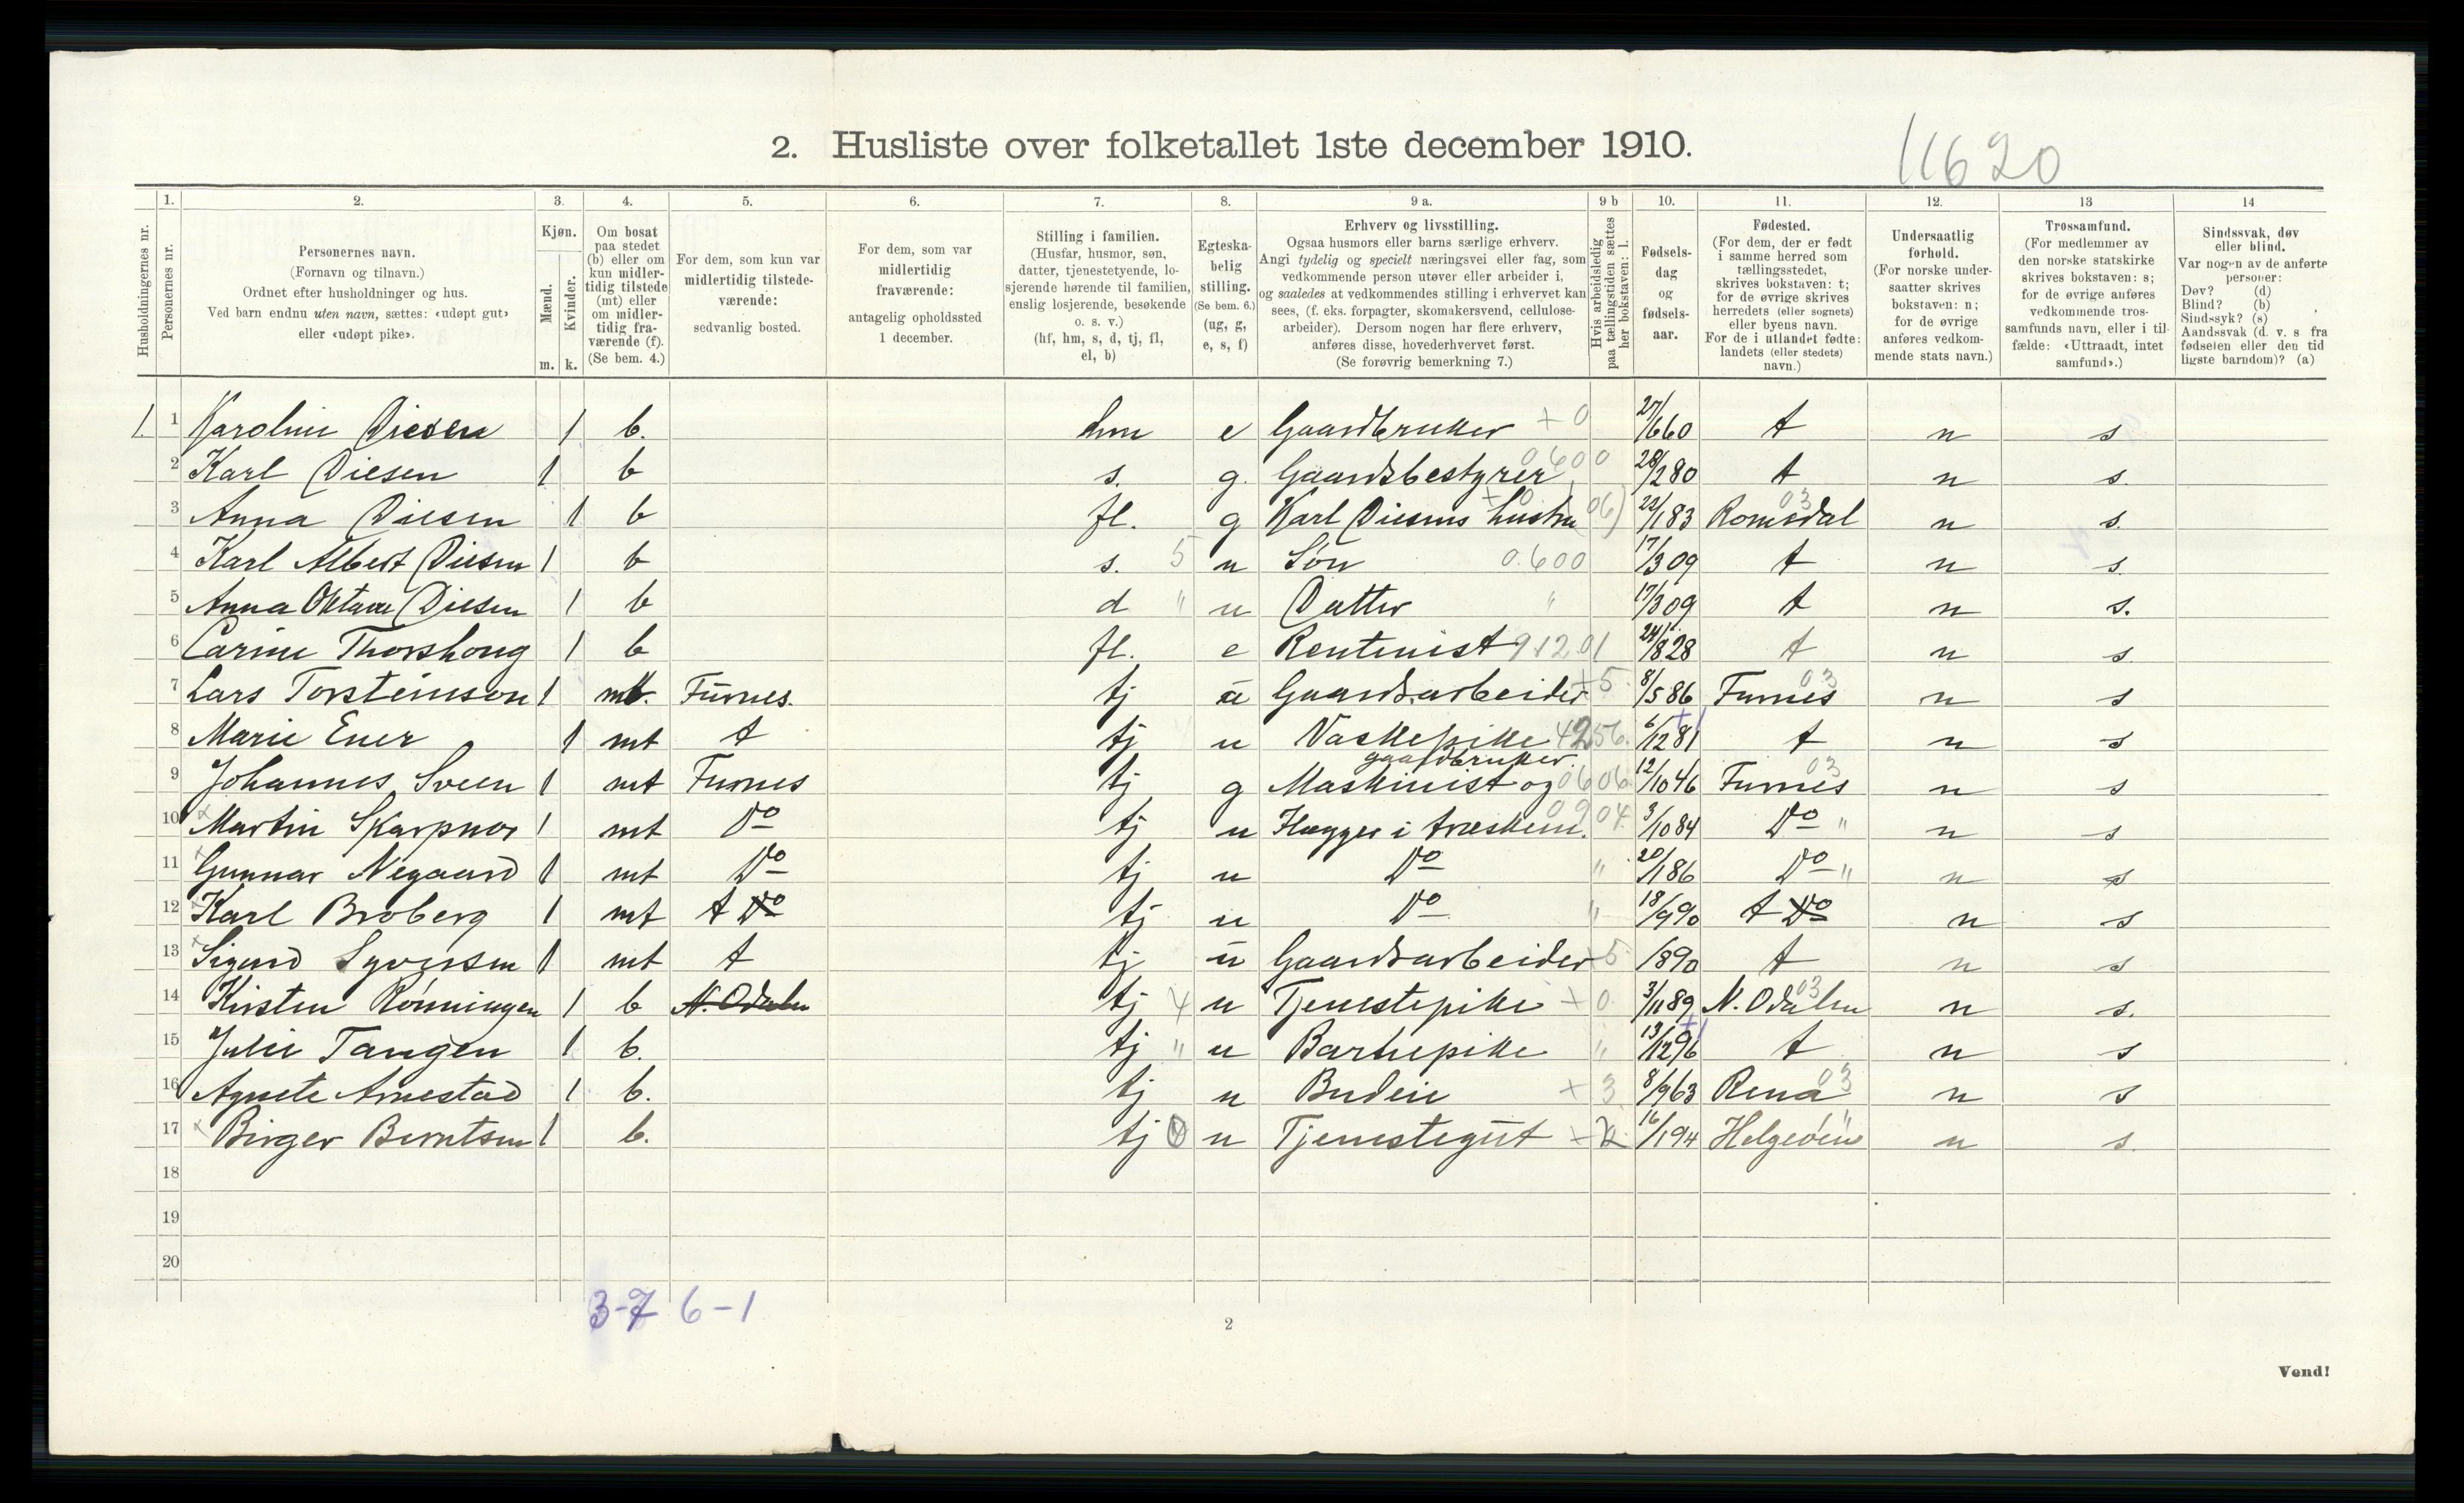 2. Husliste over folketallet 1ste december 1910.
11620
Husholdningernes nr.
1. Personernes nr.
2. Personernes navn. (Fornavn og tilnavn.) Ordnet efter husholdninger og hus. Ved barn endnu uten navn, sættes: «udøpt gut» eller «udøpt pike».
3. Kjøn. Mænd. m. Kvinder. k.
4. Om bosat paa stedet (b) eller om kun midlertidig tilstede (mt) eller om midlertidig fraværende (f). (Se bem. 4.)
5. For dem, som kun var midlertidig tilstedeværende: sedvanlig bosted.
6. For dem, som var midlertidig fraværende: antagelig opholdssted 1 december.
7. Stilling i familien. (Husfar, husmor, søn, datter, tjenestetyende, losjerende hørende til familien, enslig losjerende, besøkende o. s. v.) (hf, hm, s, d, tj, fl, el, b)
8. Egteskabelig stilling. (Se bem. 6.) (ug, g, e, s, f)
9 a. Erhverv og livsstilling. Ogsaa husmors eller barns særlige erhverv. Angi tydelig og specielt næringsvei eller fag, som vedkommende person utøver eller arbeider i, og saaledes at vedkommendes stilling i erhvervet kan sees, (f. eks. forpagter, skomakersvend, cellulosearbeider). Dersom nogen har flere erhverv, anføres disse, hovederhvervet først. (Se forøvrig bemerkning 7.)
9 b Hvis arbeidsledig paa tællingstiden sættes her bokstaven: l.
10. Fødselsdag og fødselsaar.
11. Fødested. (For dem, der er født i samme herred som tællingsstedet, skrives bokstaven: t; for de øvrige skrives herredets (eller sognets) eller byens navn. For de i utlandet fødte: landets (eller stedets) navn.)
12. Undersaatlig forhold. (For norske undersaatter skrives bokstaven: n; for de øvrige anføres vedkommende stats navn.)
13 Trossamfund. (For medlemmer av den norske statskirke skrives bokstaven: s; for de øvrige anføres vedkommende trossamfunds navn, eller i tilfælde: «Uttraadt, intet samfund».)
14 Sindssvak, døv eller blind. Var nogen av de anførte personer: Døv? (d) Blind? (b) Sindssyk? (s) Aandssvak (d. v. s fra fødselen eller den tidligste barndom)? (a)
1. 1 Karoline Diesen 1 b. hm e Gaardbruker +0 27/6 60 t n s
2 Karl Diesen 1 b s. g. Gaardsbestyrer 0600 28/2 80 t n s.
3 Anna Diesen 1 b fl. g Karl Diesens hustru 22/1 83 Romsdal 03 n s.
4 Karl Albert Diesen 1 b s. 5 u Søn 0.600 17/3 09 t n s.
5 Anna Diesen 1 b d " u Datter " 17/3 09 t n s.
6 Carine Thorshoug 1 b fl. e Rentenist 912.01 24/8 28 t n s.
7 Lars Torsteinson 1 mt. Furnes. tj u Gaardsarbeider +5 8/5 86 Furnes 03 n s
8 Marie Ener 1 mt t tj u Vaskepike 4256. 6/12 81 t n s
9 Johannes Sveen 1 mt Furnes tj g Maskinist og gaardbruker. 0606 12/10 46 Furnes 03 n s
10 Martin Skarpnor 1 mt Do tj u Hugger i træskem. 0904. 3/10 84 Do " n s
11 Gunnar Negaard 1 mt Do tj u Do " 20/1 86 Do " n s
12 Karl Broberg 1 mt t Do tj u Do " 18/9 90 t Do n s
13 Sigurd Syversen 1 mt t tj u Gaardsarbeider +5 1890 t n s
14 Kirsten Rønningen 1 b N. Odalen tj 4 u Tjenestepike +0 3/11 89 N. Odalen 03 n s.
15 Julie Tangen 1 b. tj " u Barnepike " 13/12 96 t n s
16 Agnete Arnestad 1 b. tj u Budeie +3 8/9 63 Rena 03 n s
17 Birger Berntsen 1 b. tj u Tjenestegut 16/1 94 Helgeøen " n s.
18
19
20
3-7 6-1
2
Vend!